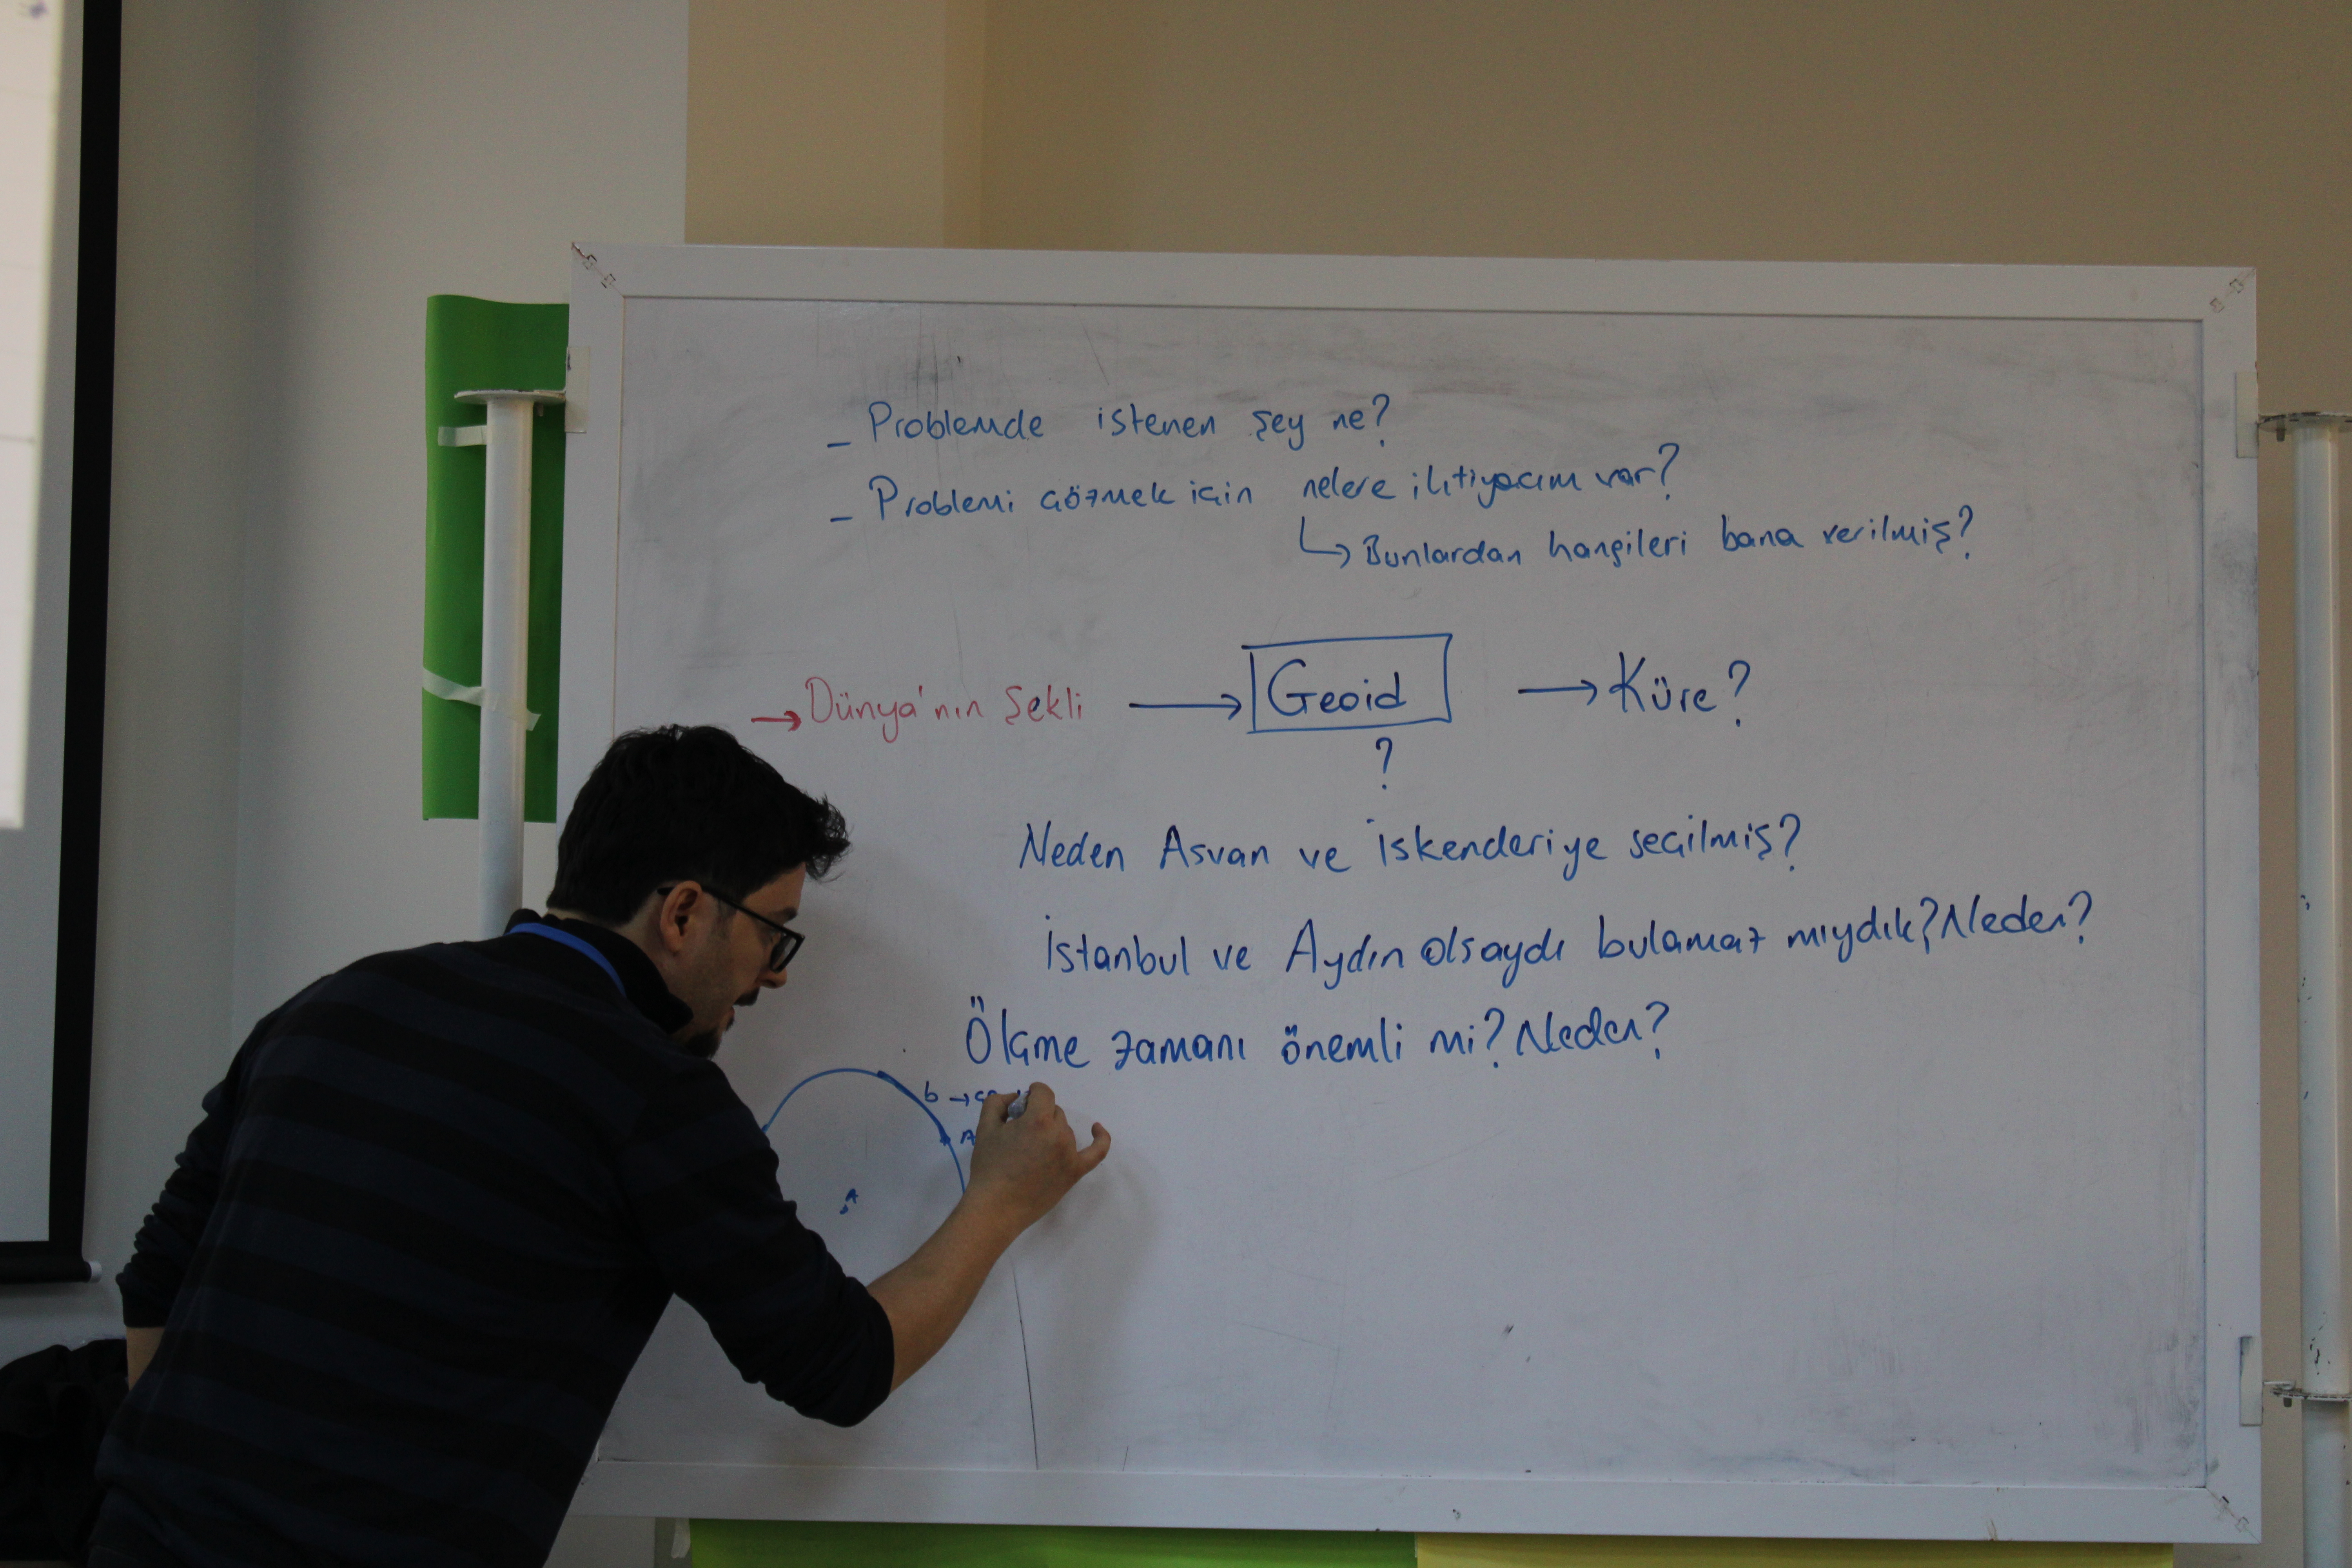 - Problemde istenen şey ne?
- Problemi çözmek için nelere ihtiyacım var?
↳ Bunlardan hangileri bana verilmiş?
→ Dünya'nın Şekli → Geoid → Küre?
?
Neden Asvan ve İskenderiye seçilmiş?
İstanbul ve Aydın olsaydı bulamaz mıydık? Neden?
Ölçme zamanı önemli mi? Neden?
b →
A
A